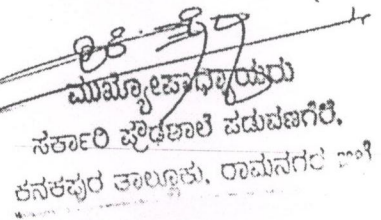 ಮುಖ್ಯೋಪಾಧ್ಯಾಯರು
ಸರ್ಕಾರಿ ಪ್ರೌಢಶಾಲೆ ಪಡುವಣಗೆರೆ,
ಕನಕಪುರ ತಾಲ್ಲೂಕು, ರಾಮನಗರ ಜಿಲ್ಲೆ